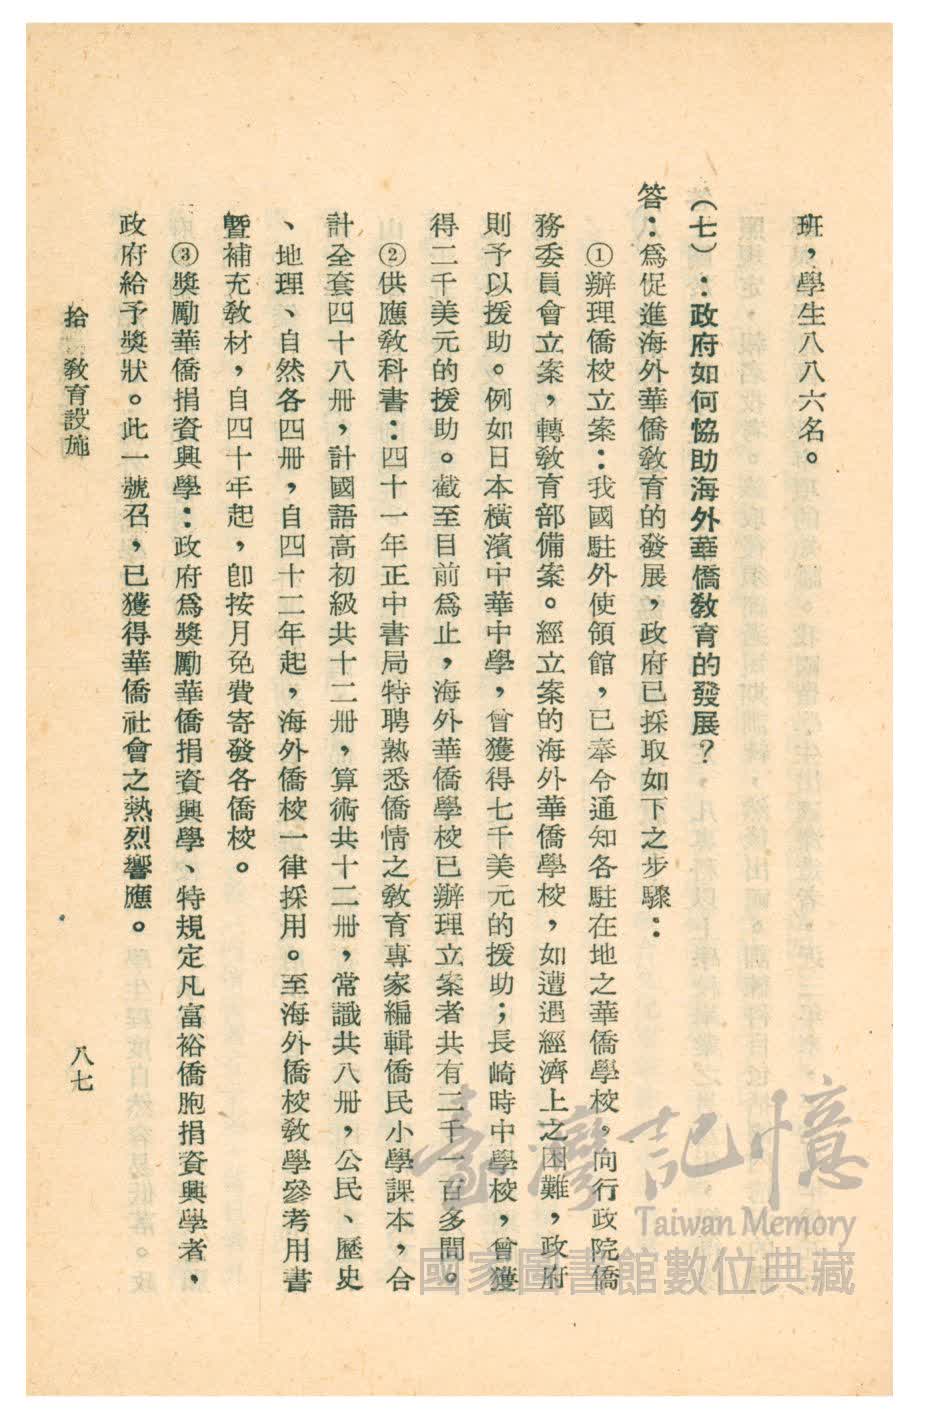 班，學生八八六名。
（七）：政府如何恊助海外華僑教育的發展？
答：爲促進海外華僑教育的發展，政府已採取如下之步驟：
①辦理僑校立案：我國駐外使領館，已奉令通知各駐在地之華僑學校，向行政院僑
務委員會立案，轉教育部備案。經立案的海外華僑學校，如遭遇經濟上之困難，政府
則予以援助。例如日本橫濱中華中學，曾獲得七千美元的援助；長崎時中學校，曾獲
得二千美元的援助。截至目前爲止，海外華僑學校已辦理立案者共有二千一百多間。
②供應教科書：四十一年正中書局特聘熟悉僑情之教育專家編輯僑民小學課本，合
計全套四十八册，計國語高初級共十二册，算術共十二册，常識共八册，公民、歷史
、地理、自然各四册，自四十二年起，海外僑校一律採用。至海外僑校教學參考用書
暨補充教材，自四十年起，卽按月免費寄發各僑校。
③獎勵華僑捐資興學：政府爲獎勵華僑捐資興學、特規定凡富裕僑胞捐資興學者，
政府給予獎狀。此一號召，已獲得華僑社會之熱烈響應。
拾 教育設施
八七
臺灣記憶
Taiwan Memory
國家圖書館數位典藏